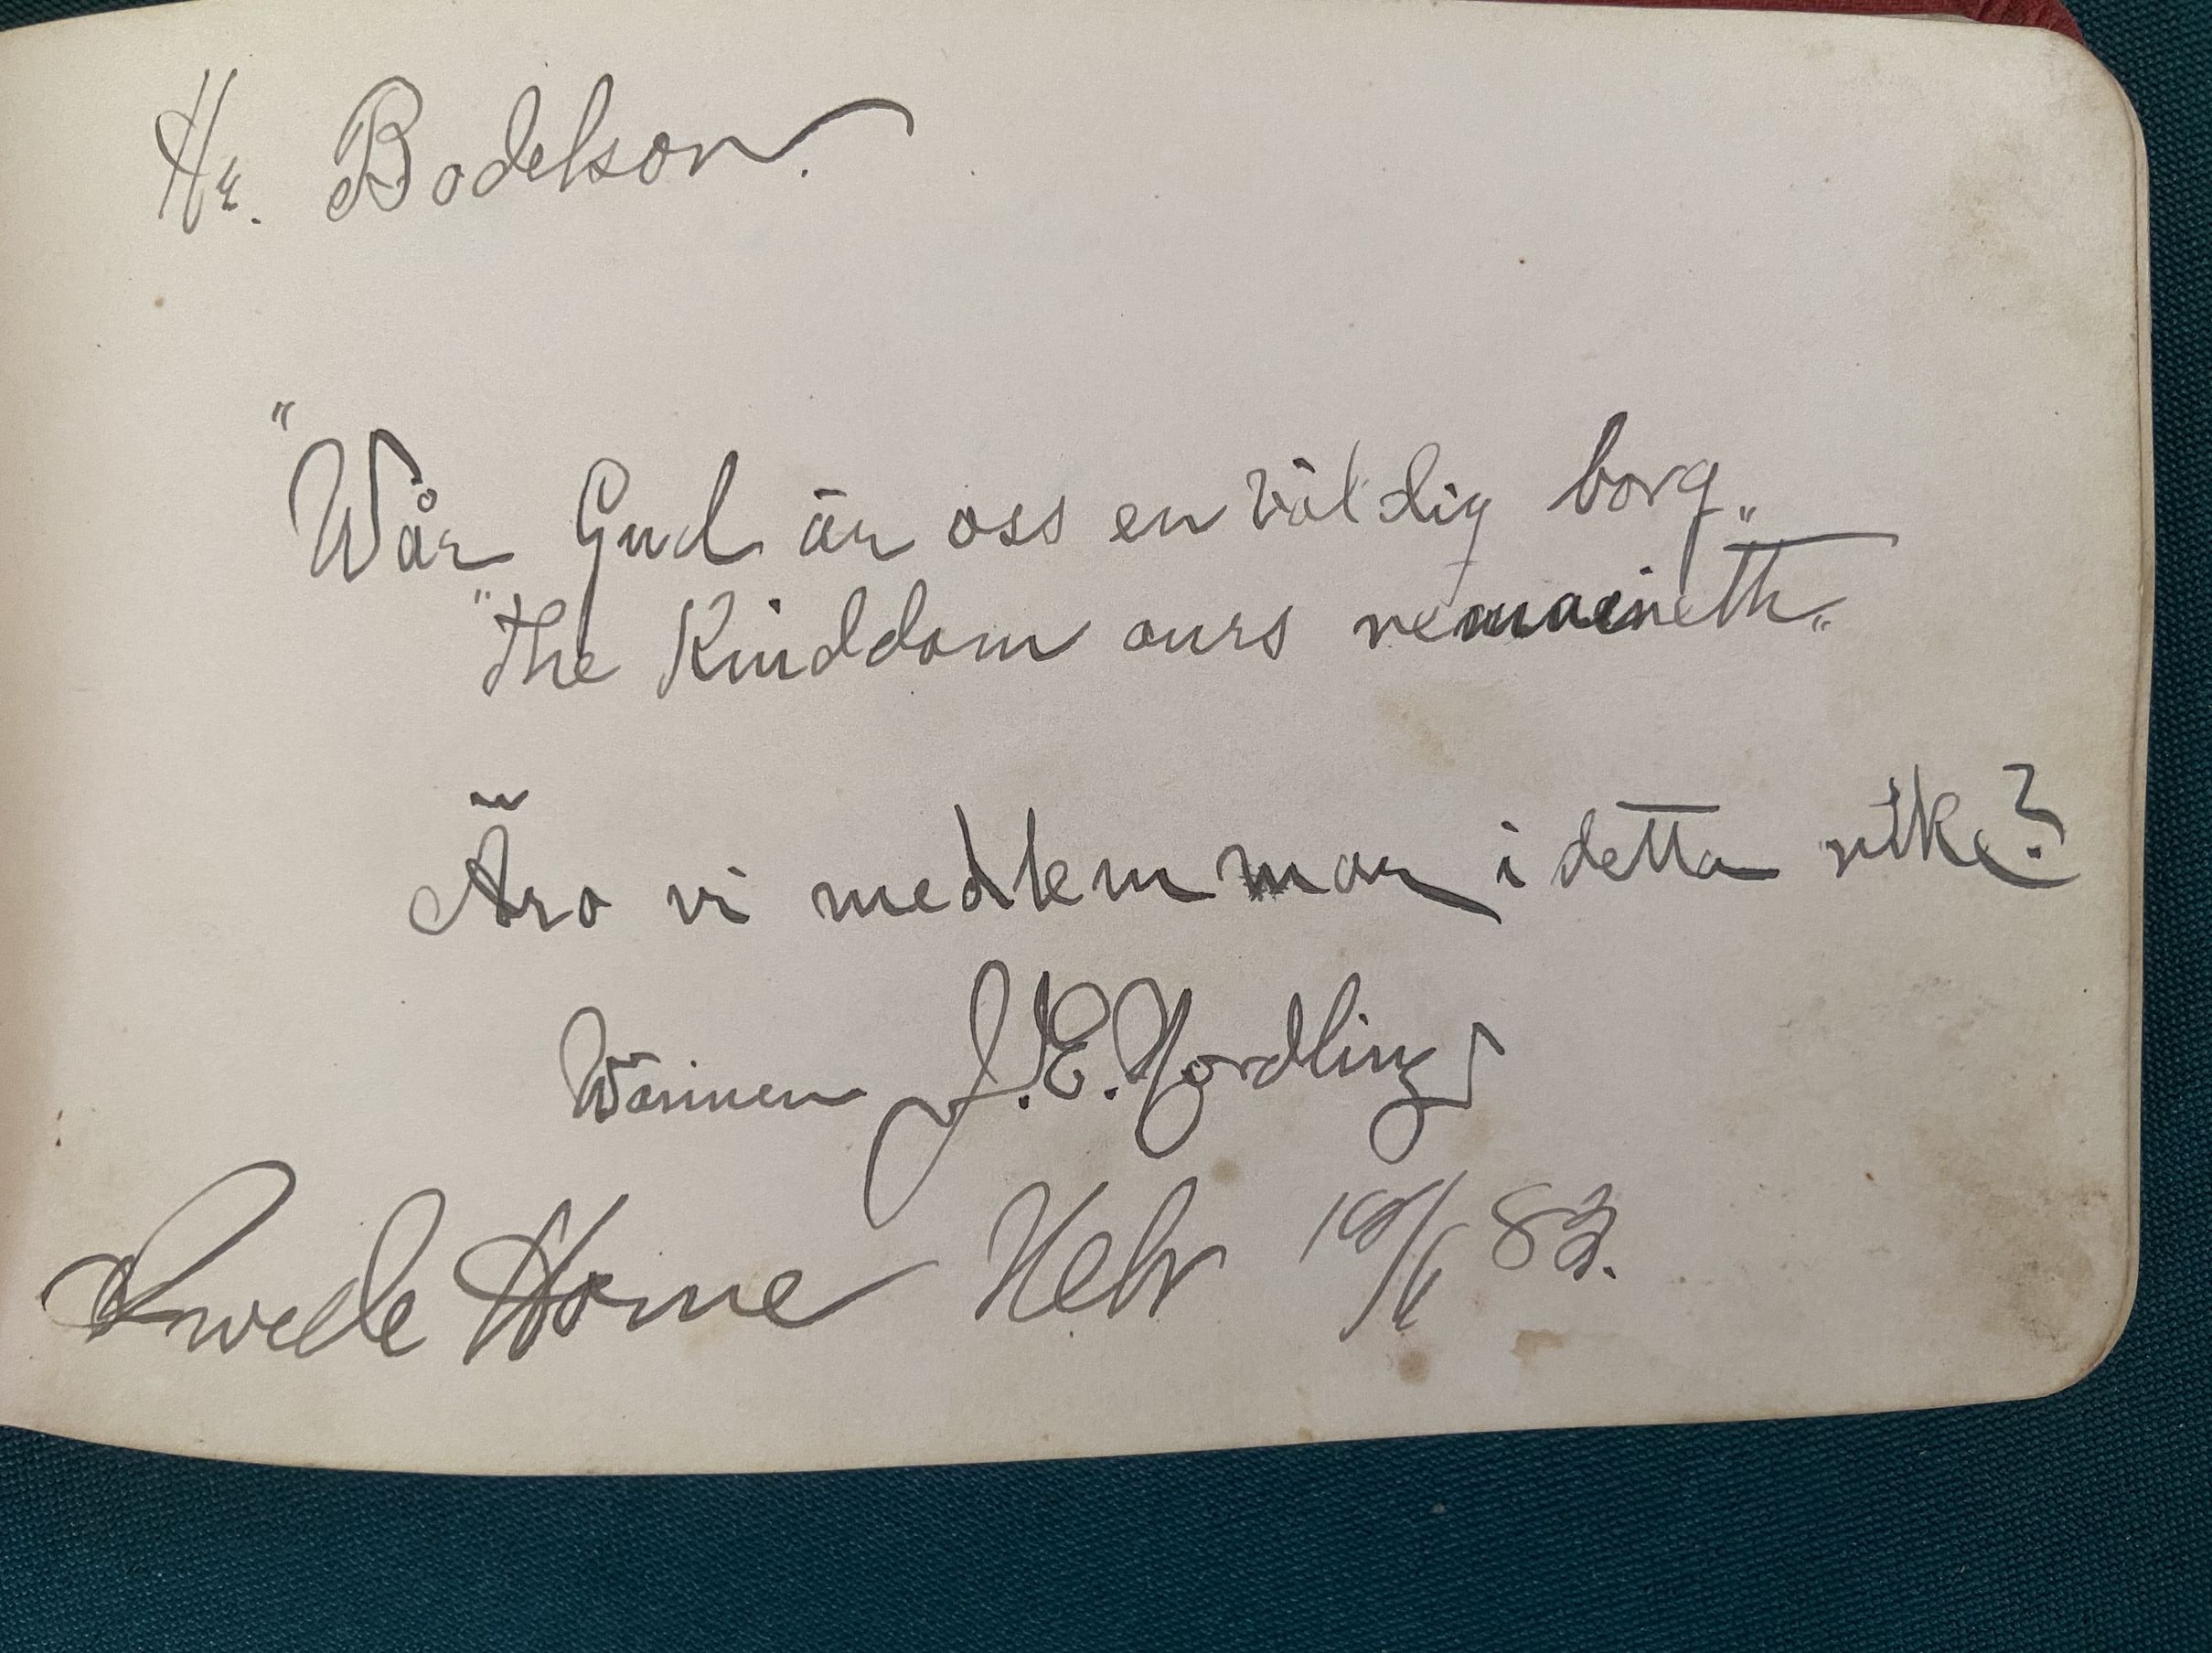 Hr. Bodelson.
"Wår Gud är oss en väldig borg"
"the Kinddom ours remaineth"
Äro vi medlemmar i detta rike?
Wännen J. E. Nordling
Swede Home Nebr 19/6 83.